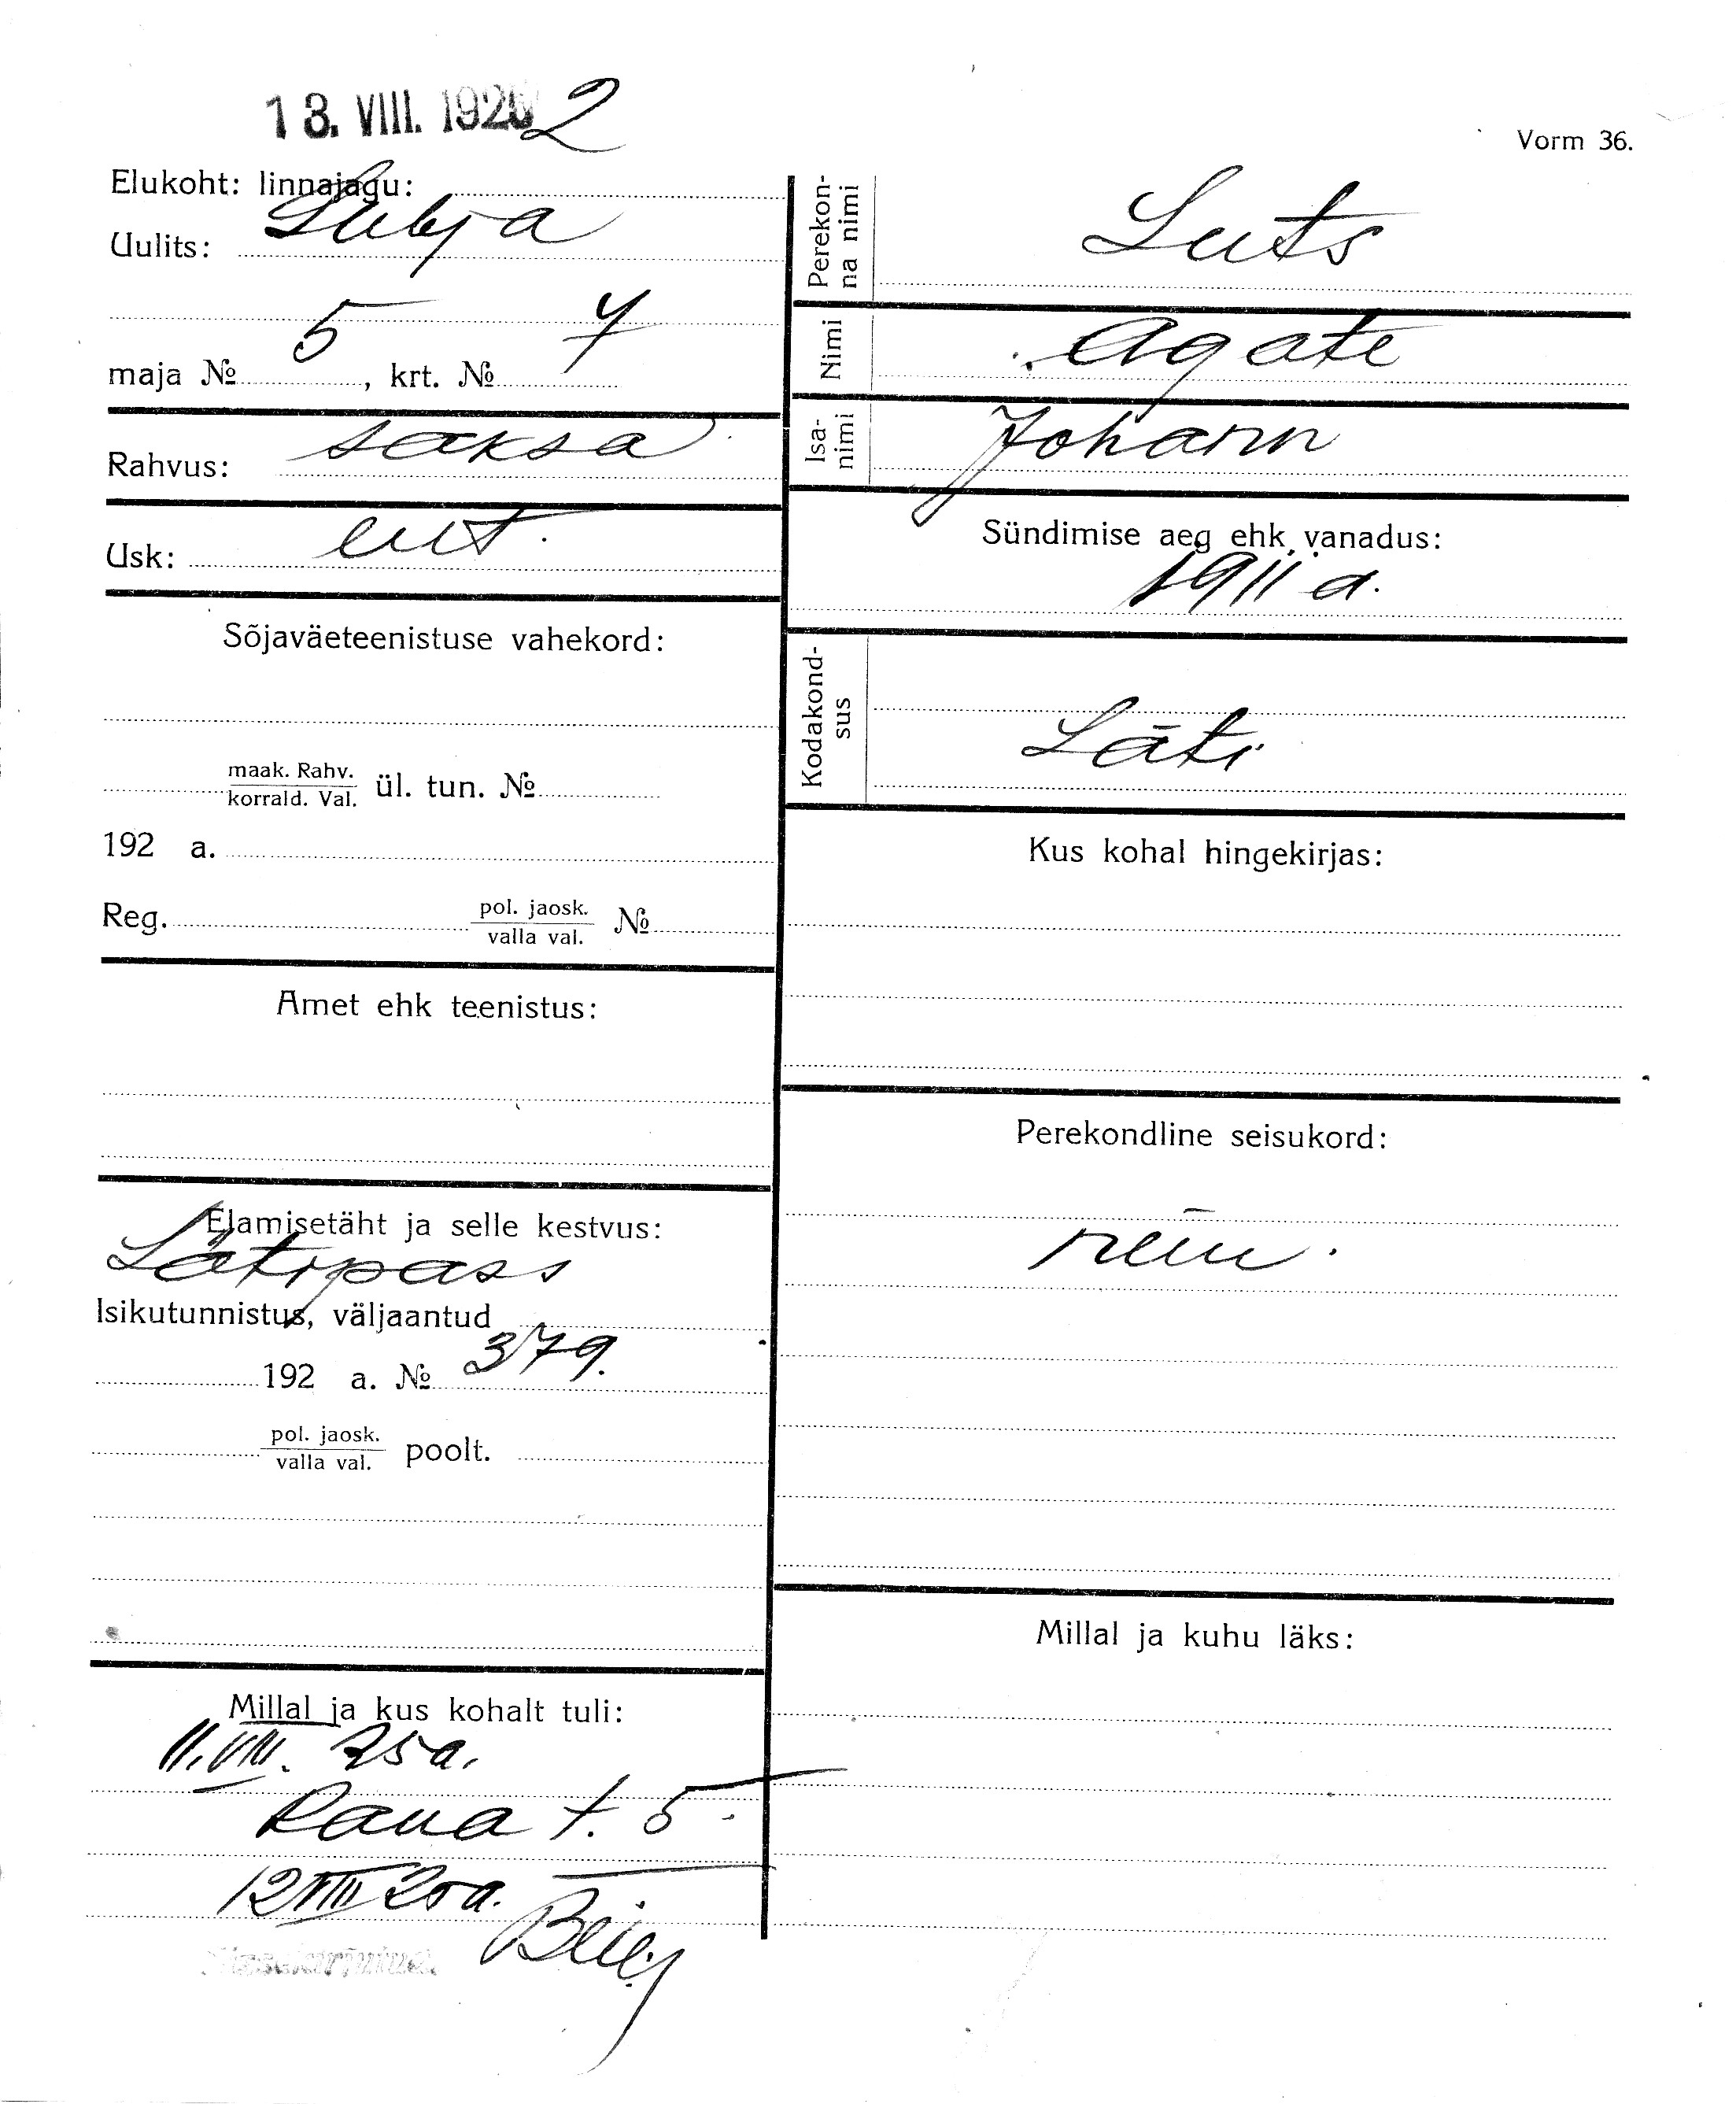 13. VIII. 1925 2
Vorm 36.
Elukoht: linnajagu:
Uulits: Lubja
maja № 5, krt. № 7
Rahvus: saksa
Usk: lut.
Sõjaväeteenistuse vahekord:
maak. Rahv.
korrald. Val. ül. tun. №
192 a.
Reg. pol. jaosk.
valla val. №
Amet ehk teenistus:
Elamisetäht ja selle kestvus:
Lätipass
Isikutunnistus, väljaantud
192 a. № 379.
pol. jaosk.
valla val. poolt.
Millal ja kus kohalt tuli:
11. VIII. 25 a.
Raua t. 5
12 VIII 25 a.
Perekon-
na nimi Luts
Nimi Agate
Isa-
nimi Johann
Sündimise aeg ehk vanadus:
1911 a.
Kodakond-
sus Läti
Kus kohal hingekirjas:
Perekondline seisukord:
neiu.
Millal ja kuhu läks: